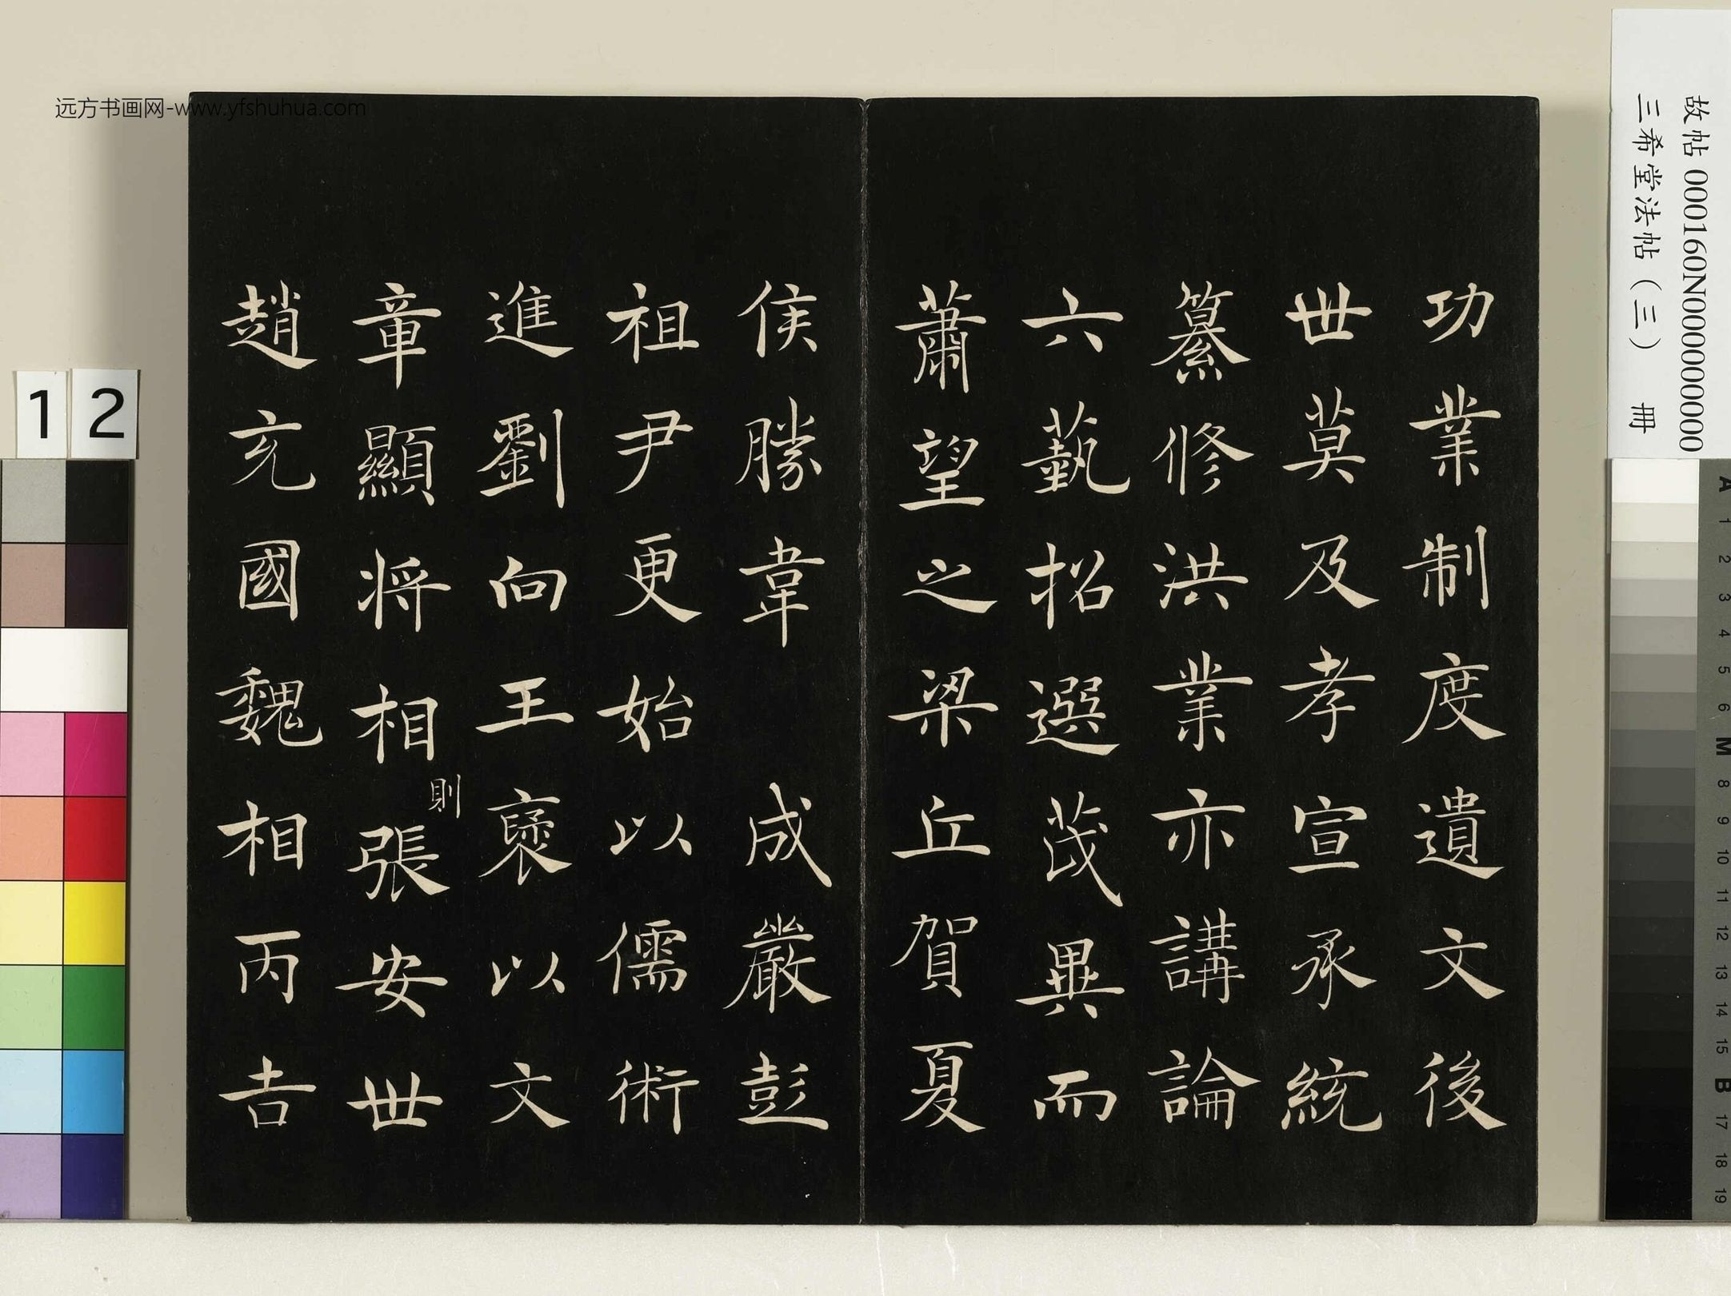 功業制度遺文後
世莫及孝宣承統
纂修洪業亦講論
六藝招選茂異而
蕭望之梁丘賀夏
侯勝韋 成嚴彭
祖尹更始以儒術
進劉向王褒以文
章顯将相則張安世
趙充國魏相丙吉
远方书画网-www.yfshuhua.com
故帖 000160N000000000
三希堂法帖（三） 冊
12
A 1 2 3 4 5 6 M 8 9 10 11 12 13 14 15 B 17 18 19